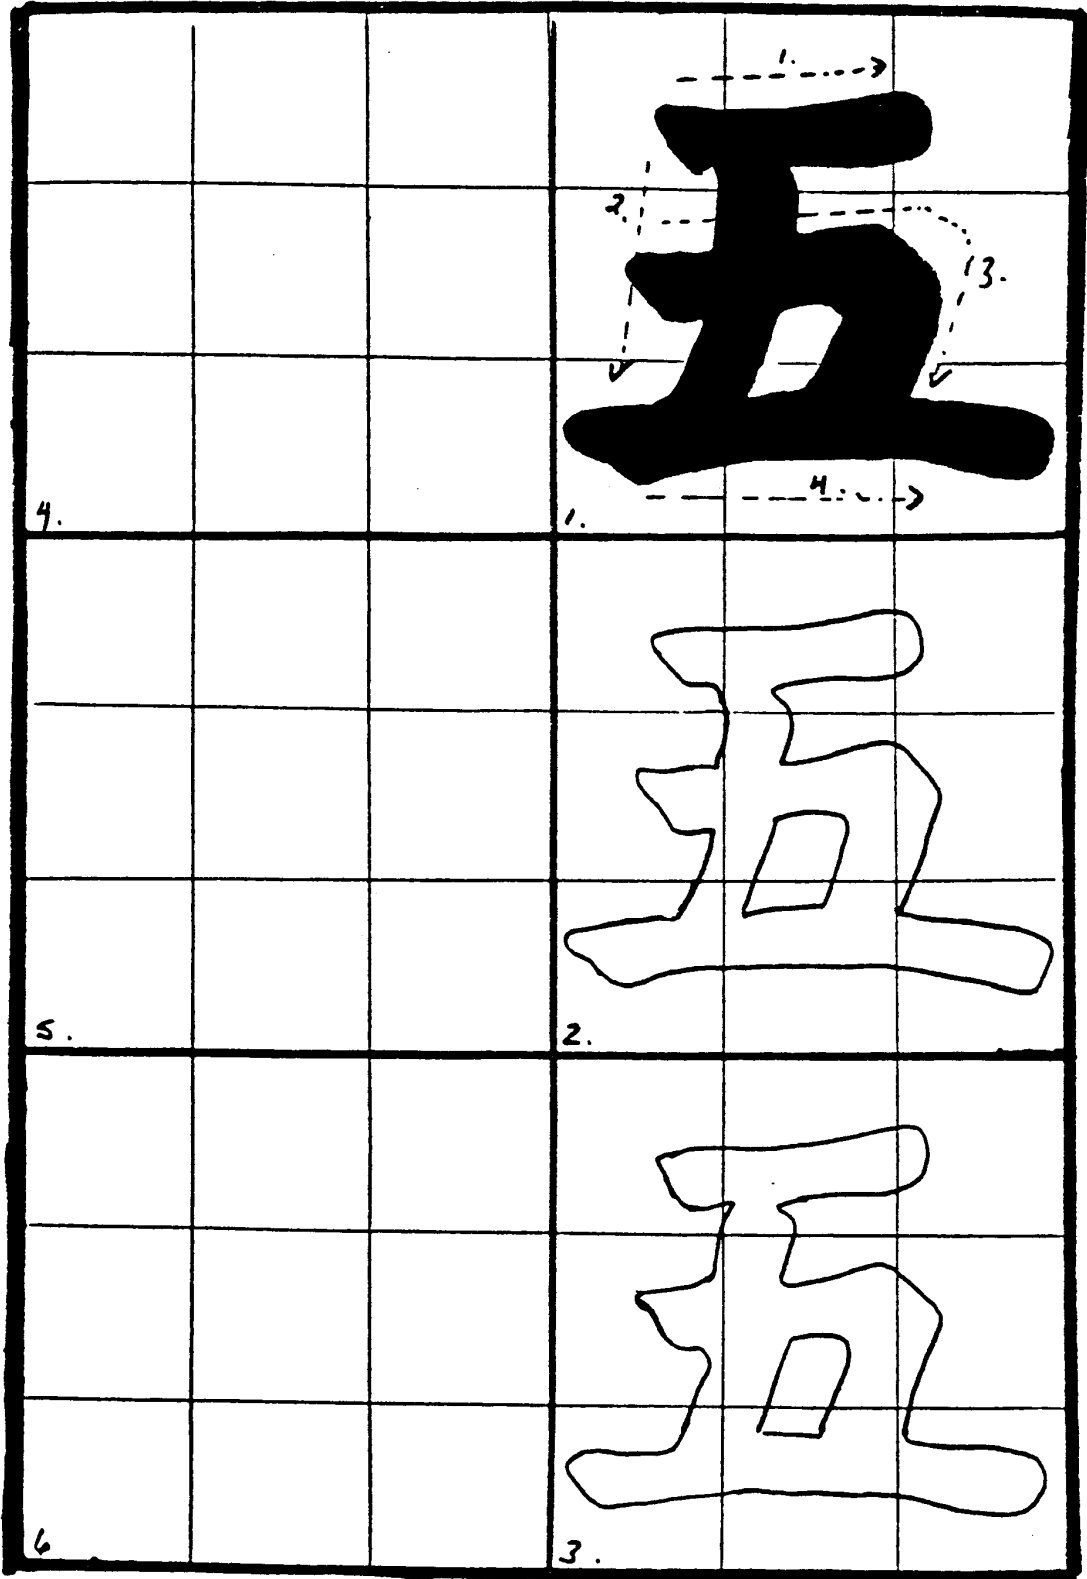 1.
五
2.
3.
4.
1.
五
2.
五
3.
4.
5.
6